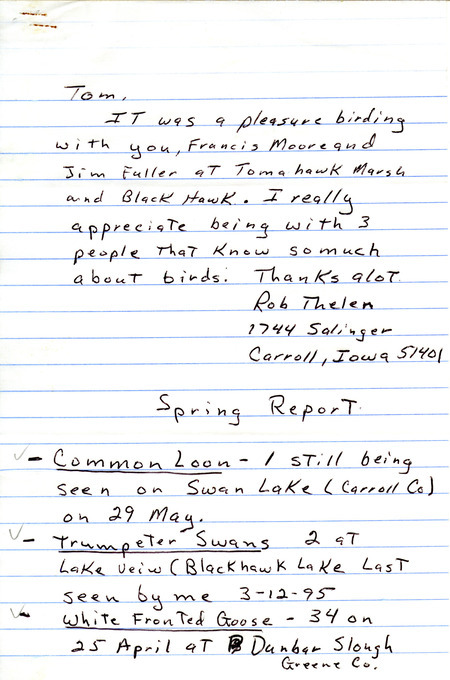 Tom,
IT was a pleasure birding
with you, Francis Moore and
Jim Fuller at Tomahawk Marsh
and Black Hawk. I really
appreciate being with 3
people that know so much
about birds. Thanks alot.
Rob Thelen
1744 Salinger
Carroll, Iowa 51401
Spring Report
- Common Loon - 1 still being
seen on Swan Lake (Carroll Co)
on 29 May.
- Trumpeter Swans 2 at
Lake veiw (Blackhawk Lake Last
seen by me 3-12-95
- White Fronted Goose - 34 on
25 April at Dunbar Slough
Greene Co.